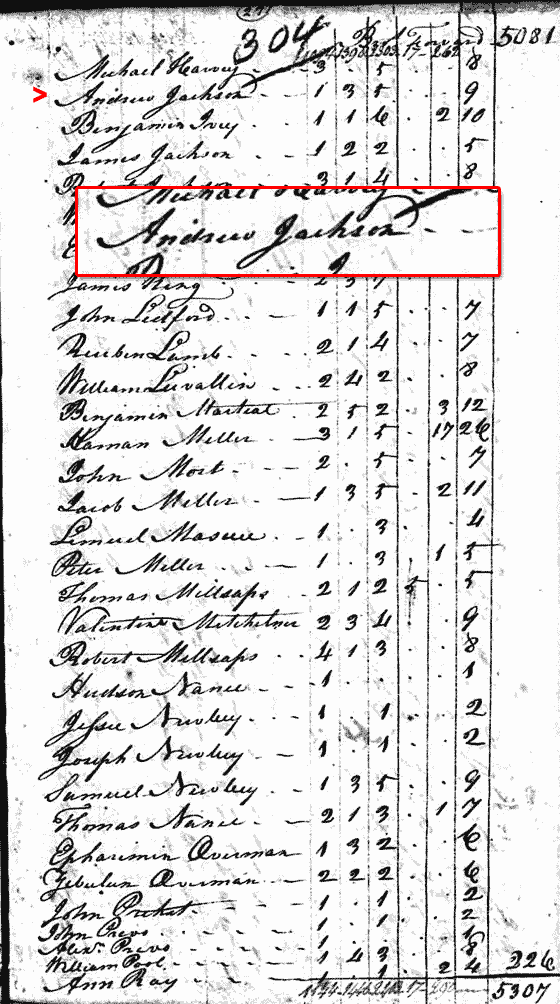 304
5081
Michael Harvey 3 . 5 . . 8
> Andrew Jackson 1 3 5 . . 9
Benjamin Ivey 1 1 6 . 2 10
James Jackson 1 2 2 . . 5
3 1 4 . . 8
Michael Harvey
Andrew Jackson
James Ring 2 3 7
John Ledford 1 1 5 . . 7
Reuben Lamb 2 1 4 . . 7
William Luvallin 2 4 2 . . 8
Benjamin Marteal 2 5 2 . 3 12
Haman Meller 3 1 5 . 17 26
John Mort 2 . 5 . . 7
Jacob Meller 1 3 5 . 2 11
Lemuel Massee 1 . 3 . . 4
Peter Meller 1 . 3 . 1 5
Thomas Millsaps 2 1 2 . . 5
Valentine Mitchelner 2 3 4 . . 9
Robert Millsaps 4 1 3 . . 8
Hudson Nance 1 . . . . 1
Jesse Newbey 1 . 1 . . 2
Joseph Newbey 1 . 1 . . 2
Samuel Newbey 1 3 5 . . 9
Thomas Nance 2 1 3 . 1 7
Epharimin Overman 1 3 2 . . 6
Zebulun Overman 2 2 2 . . 6
John 1 . 1 . . 2
John Prevo 1 . 1 . . 2
Alexr. Prevo 1 . . . . 1
William Pool 1 4 3 . . 8 226
Ann Ray . . 1 . 2 4
5307